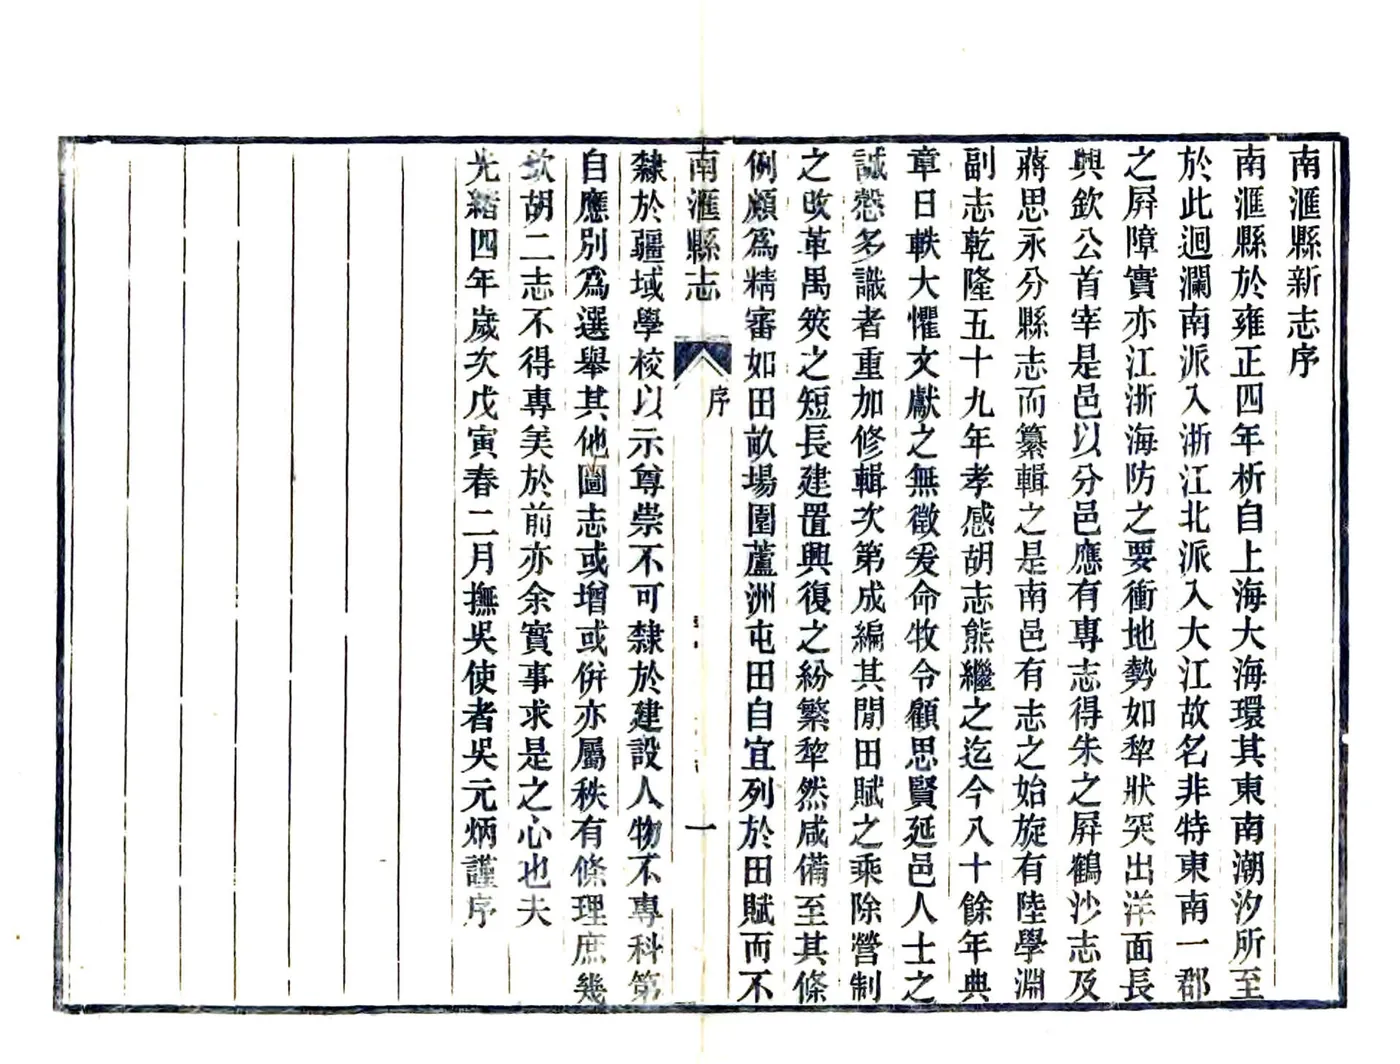 南滙縣新志序
南滙縣於雍正四年析自上海大海環其東南潮汐所至
於此迴瀾南派入浙江北派入大江故名非特東南一郡
之屏障實亦江浙海防之要衝地勢如犂狀突出洋面長
興欽公首宰是邑以分邑應有專志得朱之屏鶴沙志及
蔣思永分縣志而纂輯之是南邑有志之始旋有陸學淵
副志乾隆五十九年孝感胡志熊繼之迄今八十餘年典
章日軼大懼文獻之無徵爰命牧令顧思賢延邑人士之
誠慤多識者重加修輯次第成編其閒田賦之乘除營制
之攺革禺筴之短長建置興復之紛繁犂然咸備至其條
例頗爲精審如田畝場圍蘆洲屯田自宜列於田賦而不
南滙縣志
序
一
隸於疆域學校以示尊崇不可隸於建設人物不專科第
自應別爲選舉其他圖志或增或併亦屬秩有條理庶幾
欽胡二志不得專美於前亦余實事求是之心也夫
光緒四年歲次戊寅春二月撫吳使者吳元炳謹序